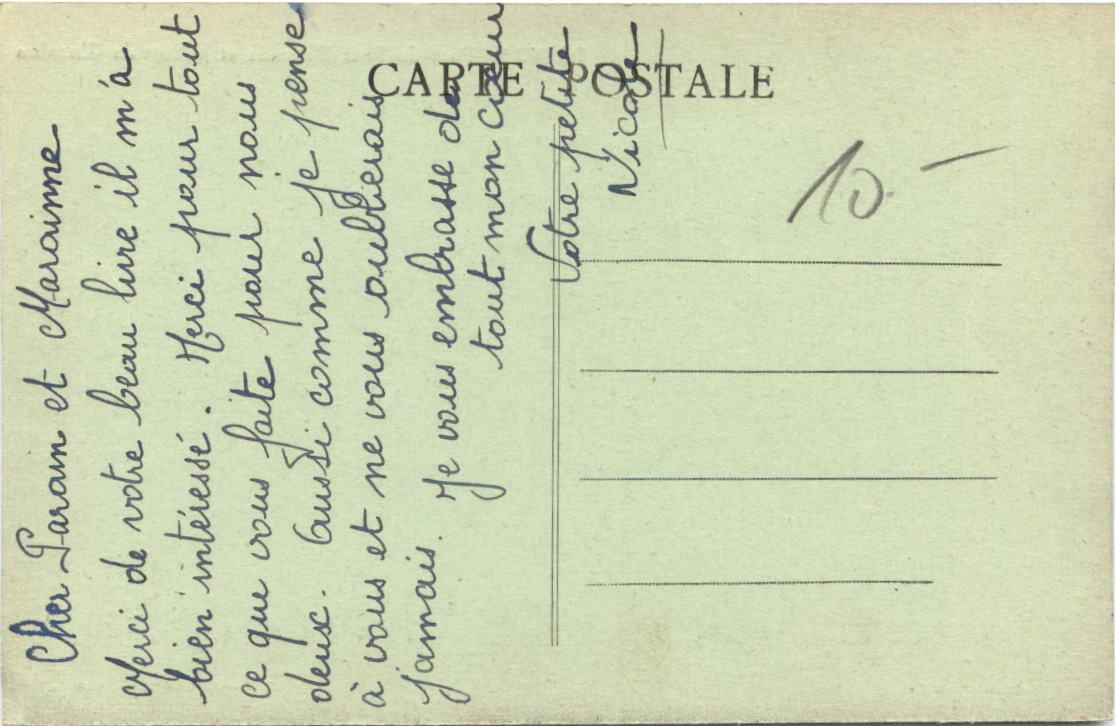 CARTE POSTALE
10.-
Cher Parain et Marainne
Merci de votre beau livre il m'a
bien intéressé. Merci pour tout
ce que vous faite pour nous
deux. Aussi comme je pense
à vous et ne vous oublierais
jamais. Je vous embrasse de
tout mon cœur
Votre petite
Nicole